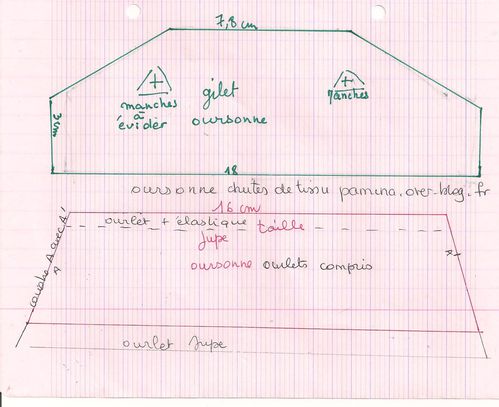 7,8 cm
+
+
manches
à
évider
gilet
oursonne
manches
3cm
18
oursonne chutes de tissu pamina.over-blog.fr
16 cm
ourlet + élastique taille
jupe
oursonne ourlets compris
coudre A avec A'
A
ourlet jupe